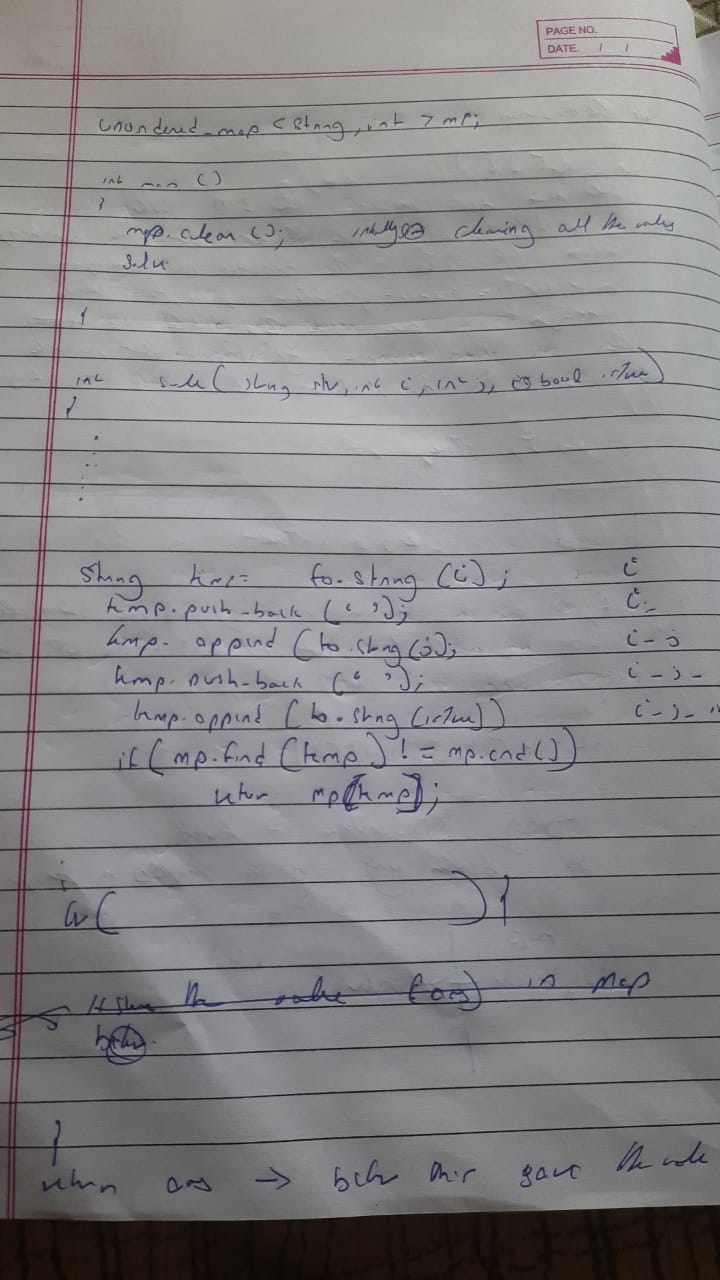 PAGE NO.
DATE. / /
unordered_map < string, int > mp;
int main ()
{
mp.clear (); clearing all the values
solve
}
int solve ( string str, int i, int j, bool isTrue)
{
string temp = to_string (i) ; i
temp.push_back (' '); i_
temp. append (to_string (j); i_j
temp. push_back (' '); i_j_
temp. append (to_string (isTrue)) i_j_
if ( mp.find (temp) != mp.end ())
return mp[temp];
for ( ) {
store the value (ans) in map
}
return ans → before this save the value